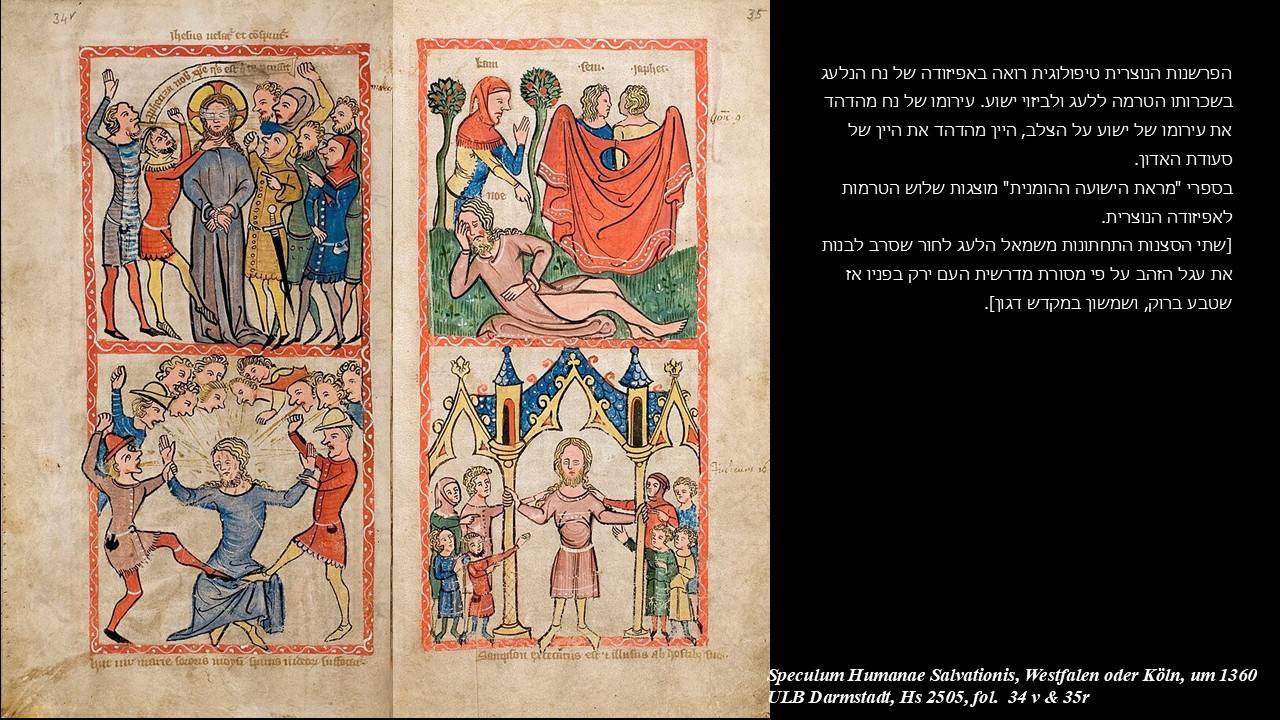 34v
Jhesus uelat et
35
kam
sem
japhet
noe
הפרשנות הנוצרית טיפולוגית רואה באפיזודה של נח הנלעג
בשכרותו הטרמה ללעג ולביזוי ישוע. עירומו של נח מהדהד
את עירומו של ישוע על הצלב, היין מהדהד את היין של
סעודת האדון.
בספרי "מראת הישועה ההומנית" מוצגות שלוש הטרמות
לאפיזודה הנוצרית.
[שתי הסצנות התחתונות משמאל הלעג לחור שסרב לבנות
את עגל הזהב על פי מסורת מדרשית העם ירק בפניו אז
שטבע ברוק, ושמשון במקדש דגון].
Speculum Humanae Salvationis, Westfalen oder Köln, um 1360
ULB Darmstadt, Hs 2505, fol. 34 v & 35r